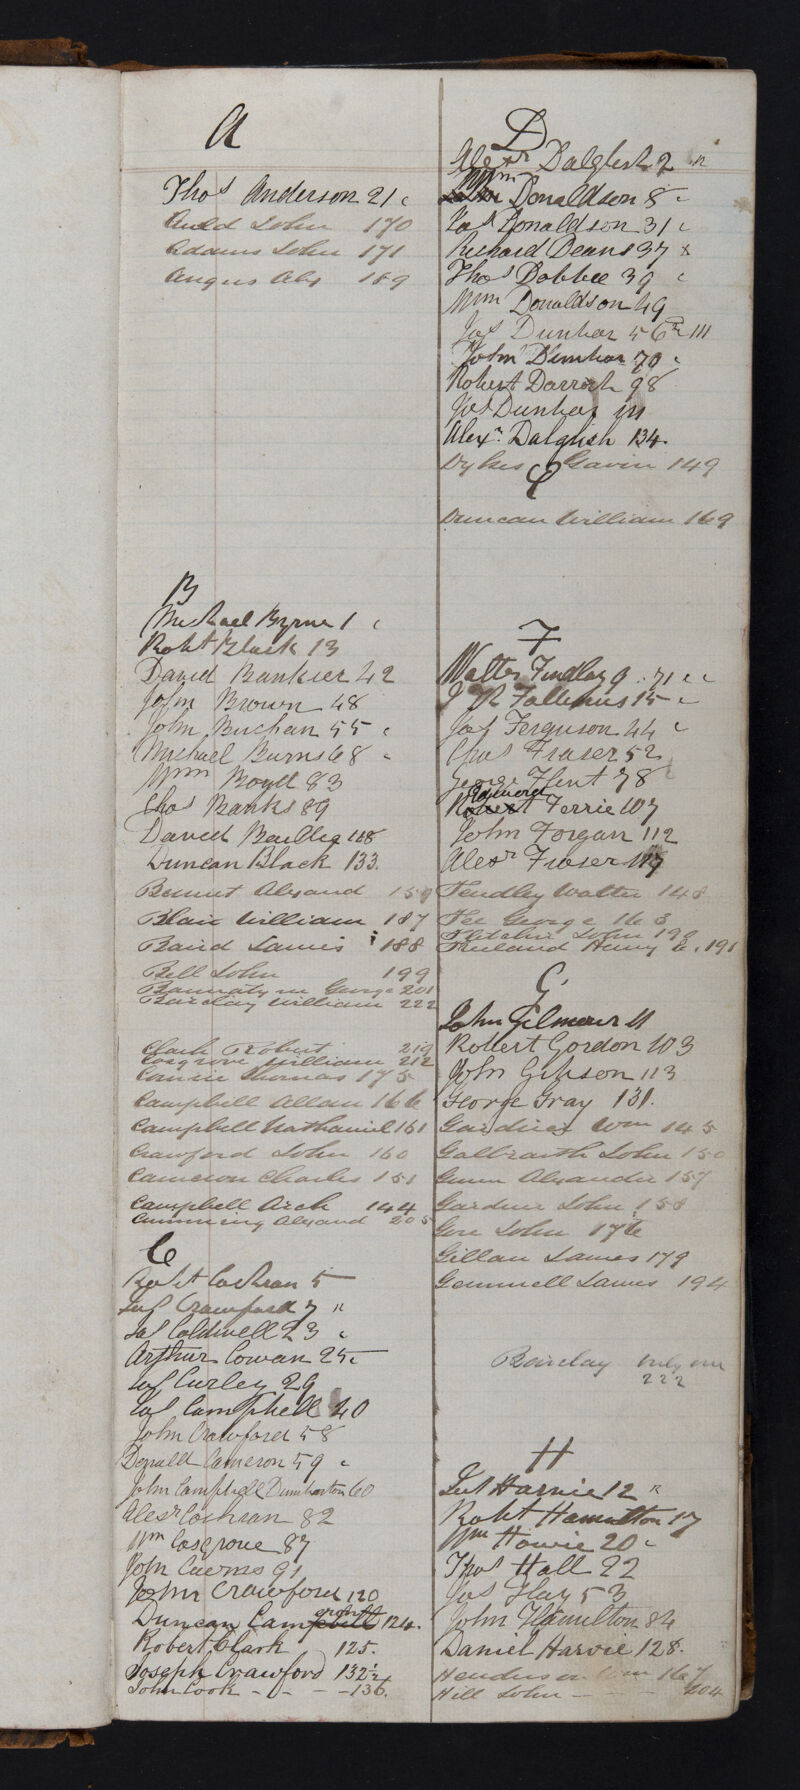 A
Thos Anderson 21 c
Auld John 170
Adams John 171
Angus Alex 189
B
Michael Byrne 1 c
Robt Black 13
David Bankier 42
John Brown 48
John Buchan 55 c
Michael Burns 68 c
Wm Boyd 83
Thos Banks 89
David Baillie 118
Duncan Black 133.
Bennet Alexand 159
Blair William 187
Baird James 188
Bell John 199
George 201
Barclay William 222
Clark Robert 219
Cosgrove William 212
Thomas 175
Campbell Allan 166
Campbell Nathaniel 161
Crawford John 160
Cameron Charles 151
Campbell Arch 144
Cumming Alexand 205
C
Robt Cochran 5
Jas Crawford 7 "
Jas Coldwell 23 c
Arthur Cowan 25 c
Jas Curley 29
Jas Campbell 40
John Crawford 58
Donald Cameron 59 c
John Campbell Dumbarton 60
Alexr Cochran 82
Wm Cosgrove 87
John Cairns 91
John Crawford 120
Duncan Campbell 124.
Robert Clark 125.
Joseph Crawford 132½
John Cook - - - 136.
D
Alexr Dalglish 2 "
Wm Donaldson 8 c
Jas Donaldson 31 c
Richard Deans 37 x
Thos Dobbie 39 c
Wm Donaldson 49
Jas Dunbar 56 & 111
John Dunbar 70 c
Robert Darroch 98
Jas Dunbar 111
Alexr. Dalglish 134.
Dykes Gavin 149
E
Duncan William 169
F
Walter Findlay 9 .. 71 c c
15 c
Jas Ferguson 44 c
Chas Fraser 52
George Flint 78
Edward
Robert Ferrie 107
John Forgan 112
Alexr Fraser 119
Findley Walter 148
Fee George 163
Fletcher John 190
Freeland Henry 191
G
John Gilmour 11
Robert Gordon 103
John Gibson 113
George Gray 131.
Gardiner Wm 145
Galbraith John 150
Gunn Alexander 157
Gardner John 158
Gore John 176
Gillan James 179
Gemmell James 194
Barclay
222
H
Harvie 12 "
Robt Hamilton 17
Wm Howie 20 c
Thos Hall 22
Jas Hay 53
John Hamilton 84
Daniel Harvie 128.
Henderson Wm 167
Hill John - - - 204